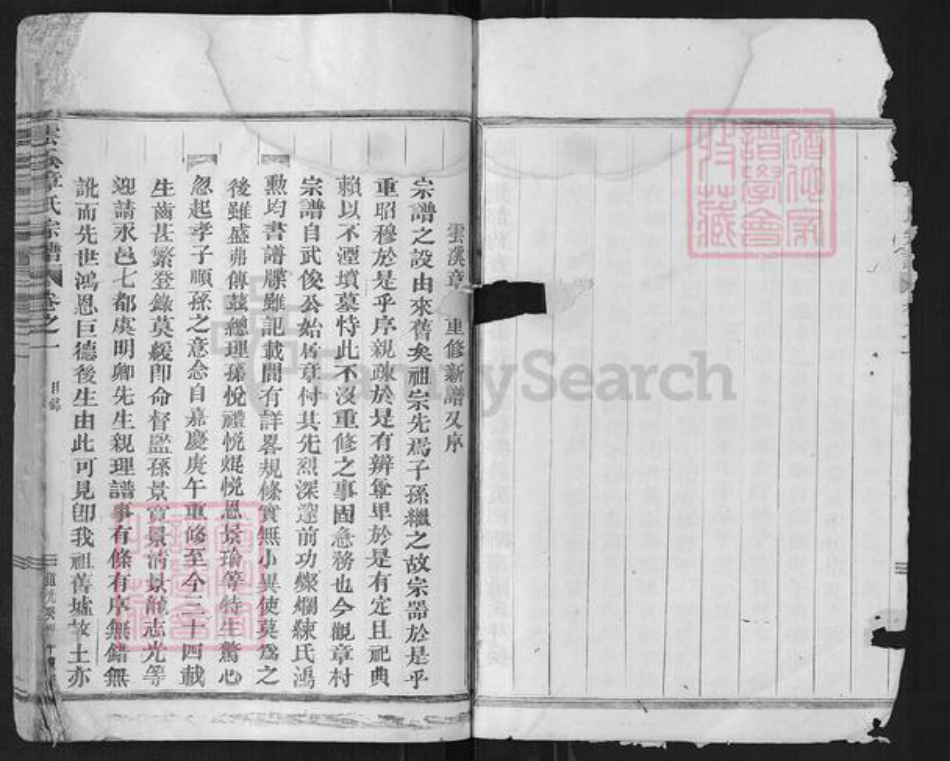 雲溪章 重修新譜又序
宗譜之設由來舊矣祖宗先焉子孫繼之故宗器於是乎
重昭穆於是乎序親疎於是有辨尊卑於是有定且祀典
賴以不湮墳墓恃此不沒重修之事固急務也今觀章村
宗譜自武俊公始居章村其先烈深邃前功燦爛練氏鴻
勲均書譜牒雖記載間有詳畧規條實無小異使莫為之
後雖盛弗傳茲總理孫悅禮悅焜悅恩景瑜等特生驚心
忽起孝子順孫之意念自嘉慶庚午重修至今二十四載
生齒甚繁登錄莫緩即命督監孫景 景清景 志光等
迎請永邑七都虞明卿先生親理譜事有條有序無錯無
訛而先世鴻恩巨德後生由此可見即我祖舊墟故土亦
章氏宗譜 卷之一
FamilySearch